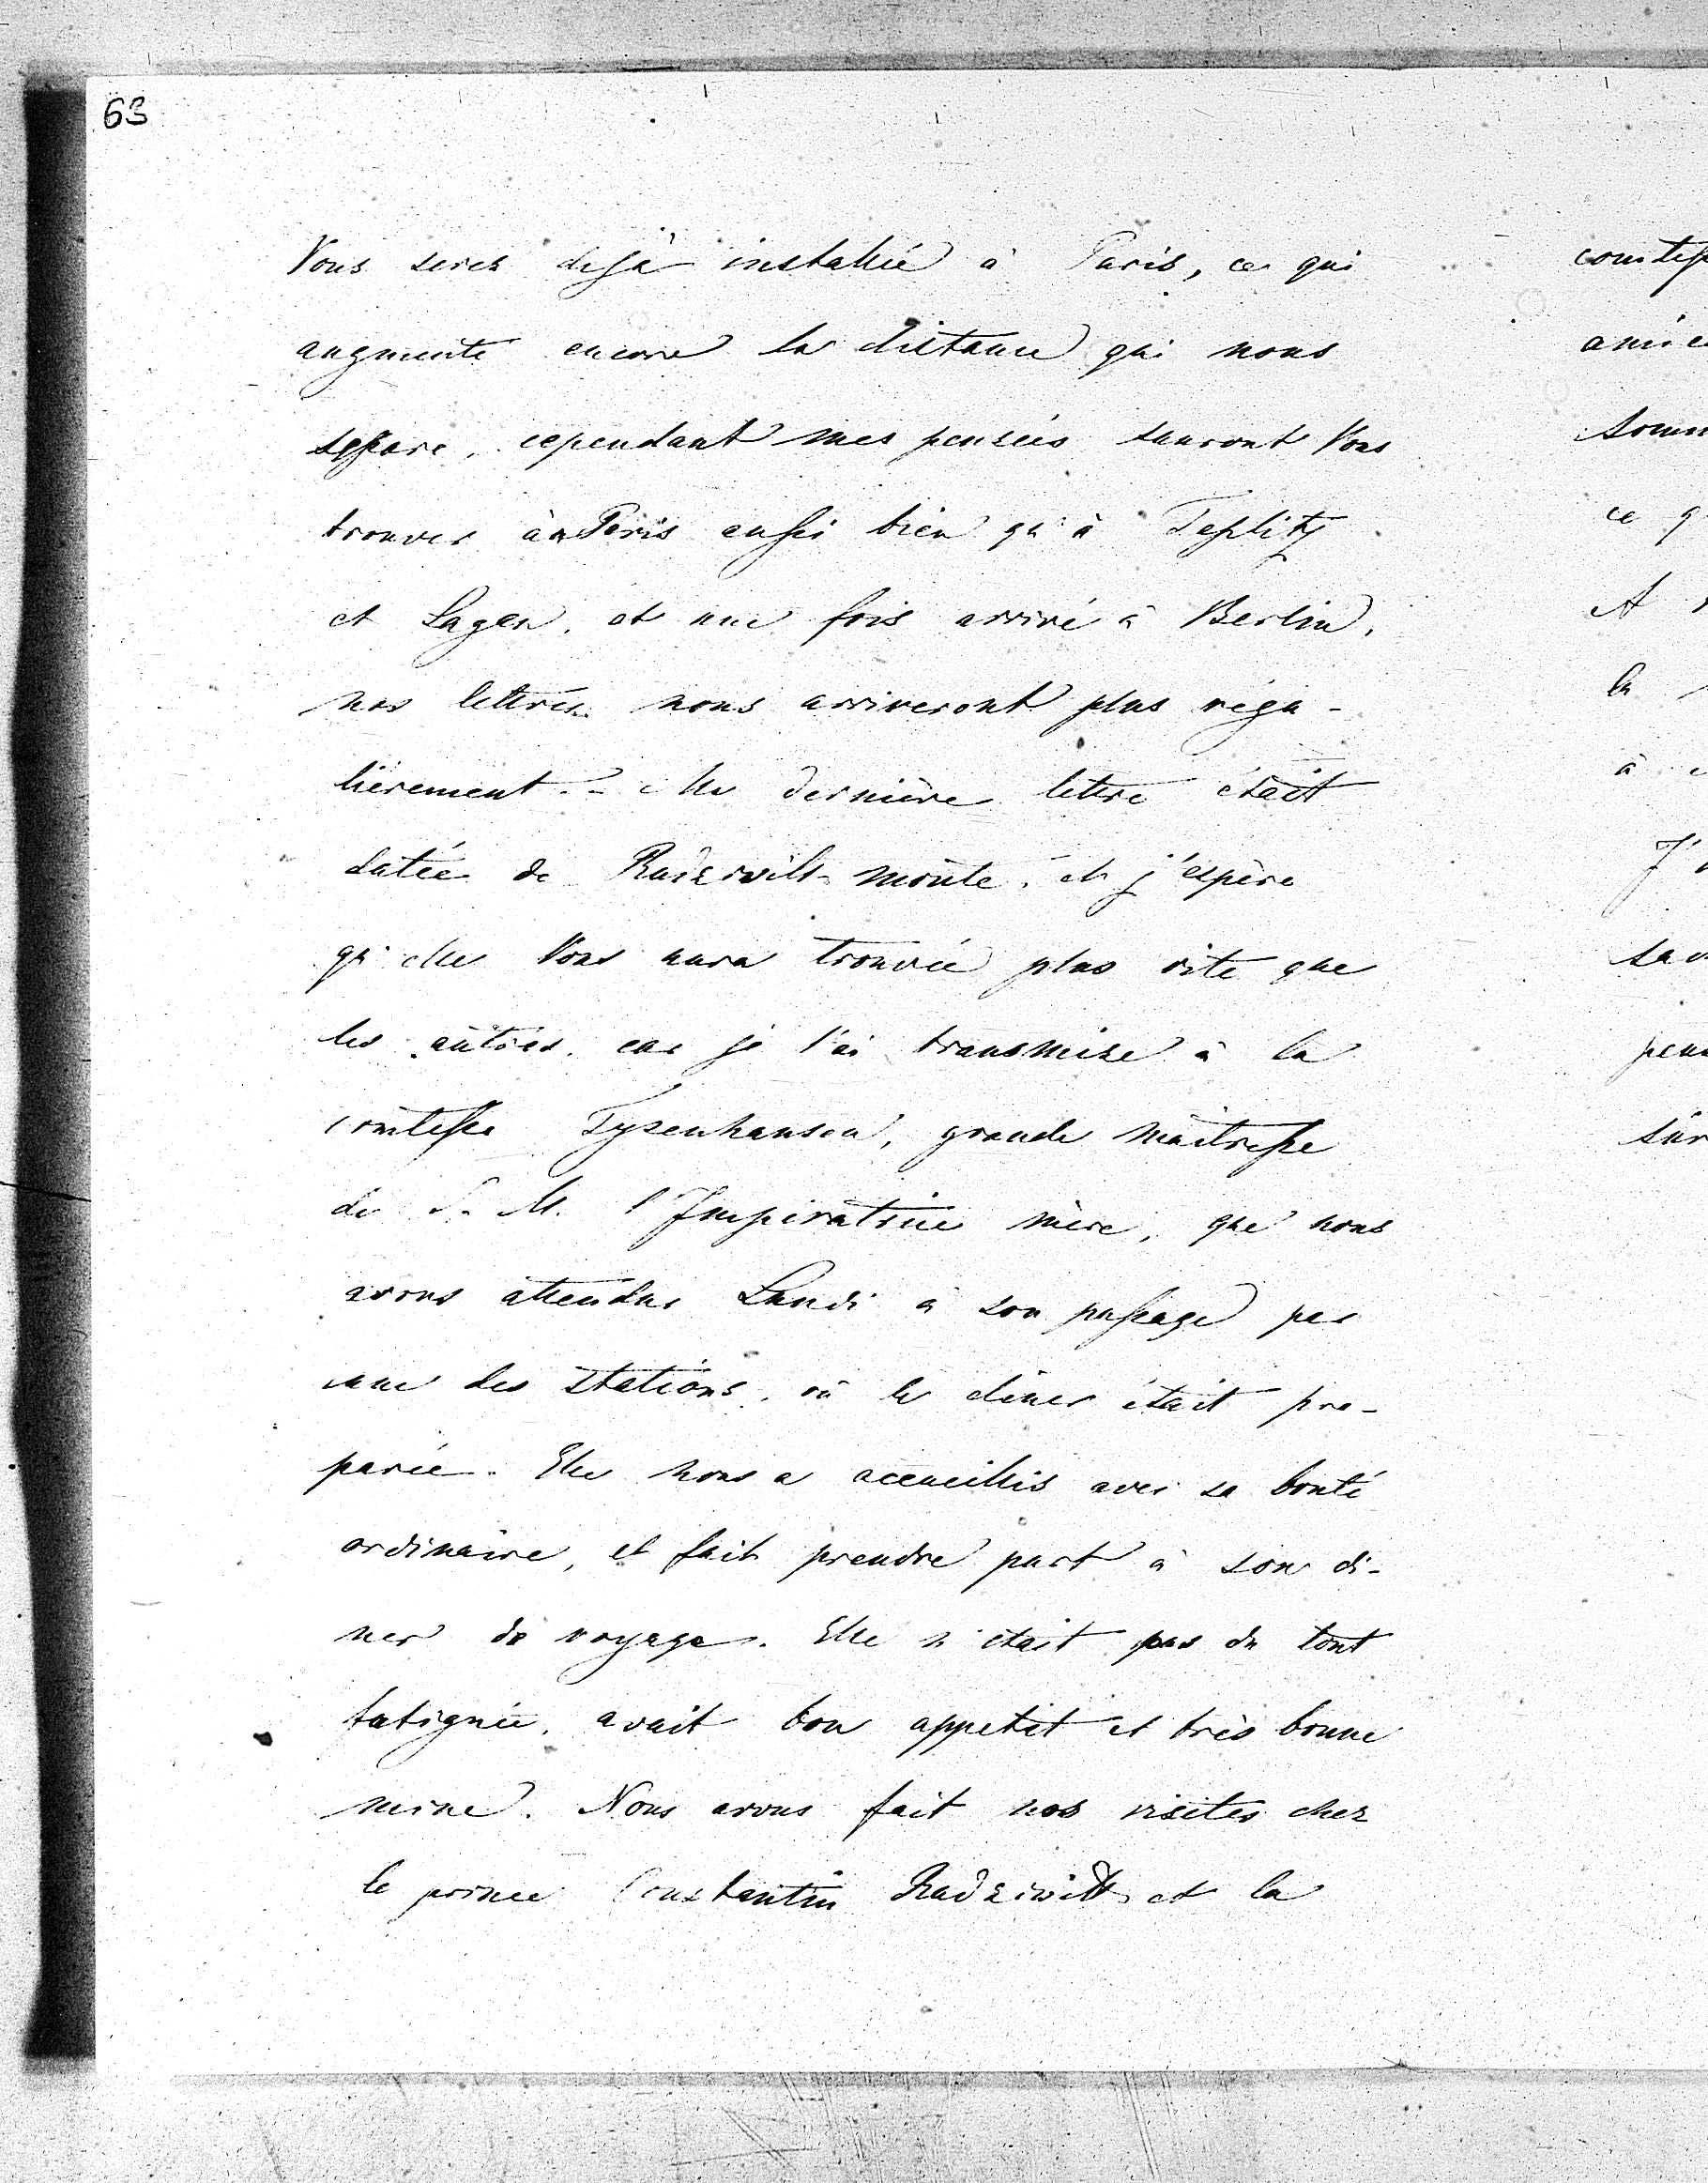 63
Vous serez dejà installée à Paris, ce qui
augmente encore la distance qui nous
separe, cependant mes pensées sauront Vous
trouver à Paris aussi bien qu'à Teplitz
et Sagan, et une fois arrivé à Berlin,
nos lettres nous arriveront plus régu-
lièrement. - Ma dernière lettre était
datée de Radziwilt-monte, et j'espère
qu'elle Vous aura trouvée plus vite que
les autres, car je l'ai transmise à la
comtesse Tysenhausen, grande maitresse
de S. M. l'Imperatrice mère, que nous
avons attendus Lundi à son passage par
une des stations, où le diner était pre-
parée. Elle nous a accueillis avec sa bonté
ordinaire, et fait prendre part à son di-
ner de voyage. Elle n'était pas du tout
fatignée, avait bon appetit et très bonne
mine. Nous avons fait nos visites chez
le prince Constantin Radziwill et la
comtess
amie
somm
ce q
A
la
à
J'
sav
pens
sur